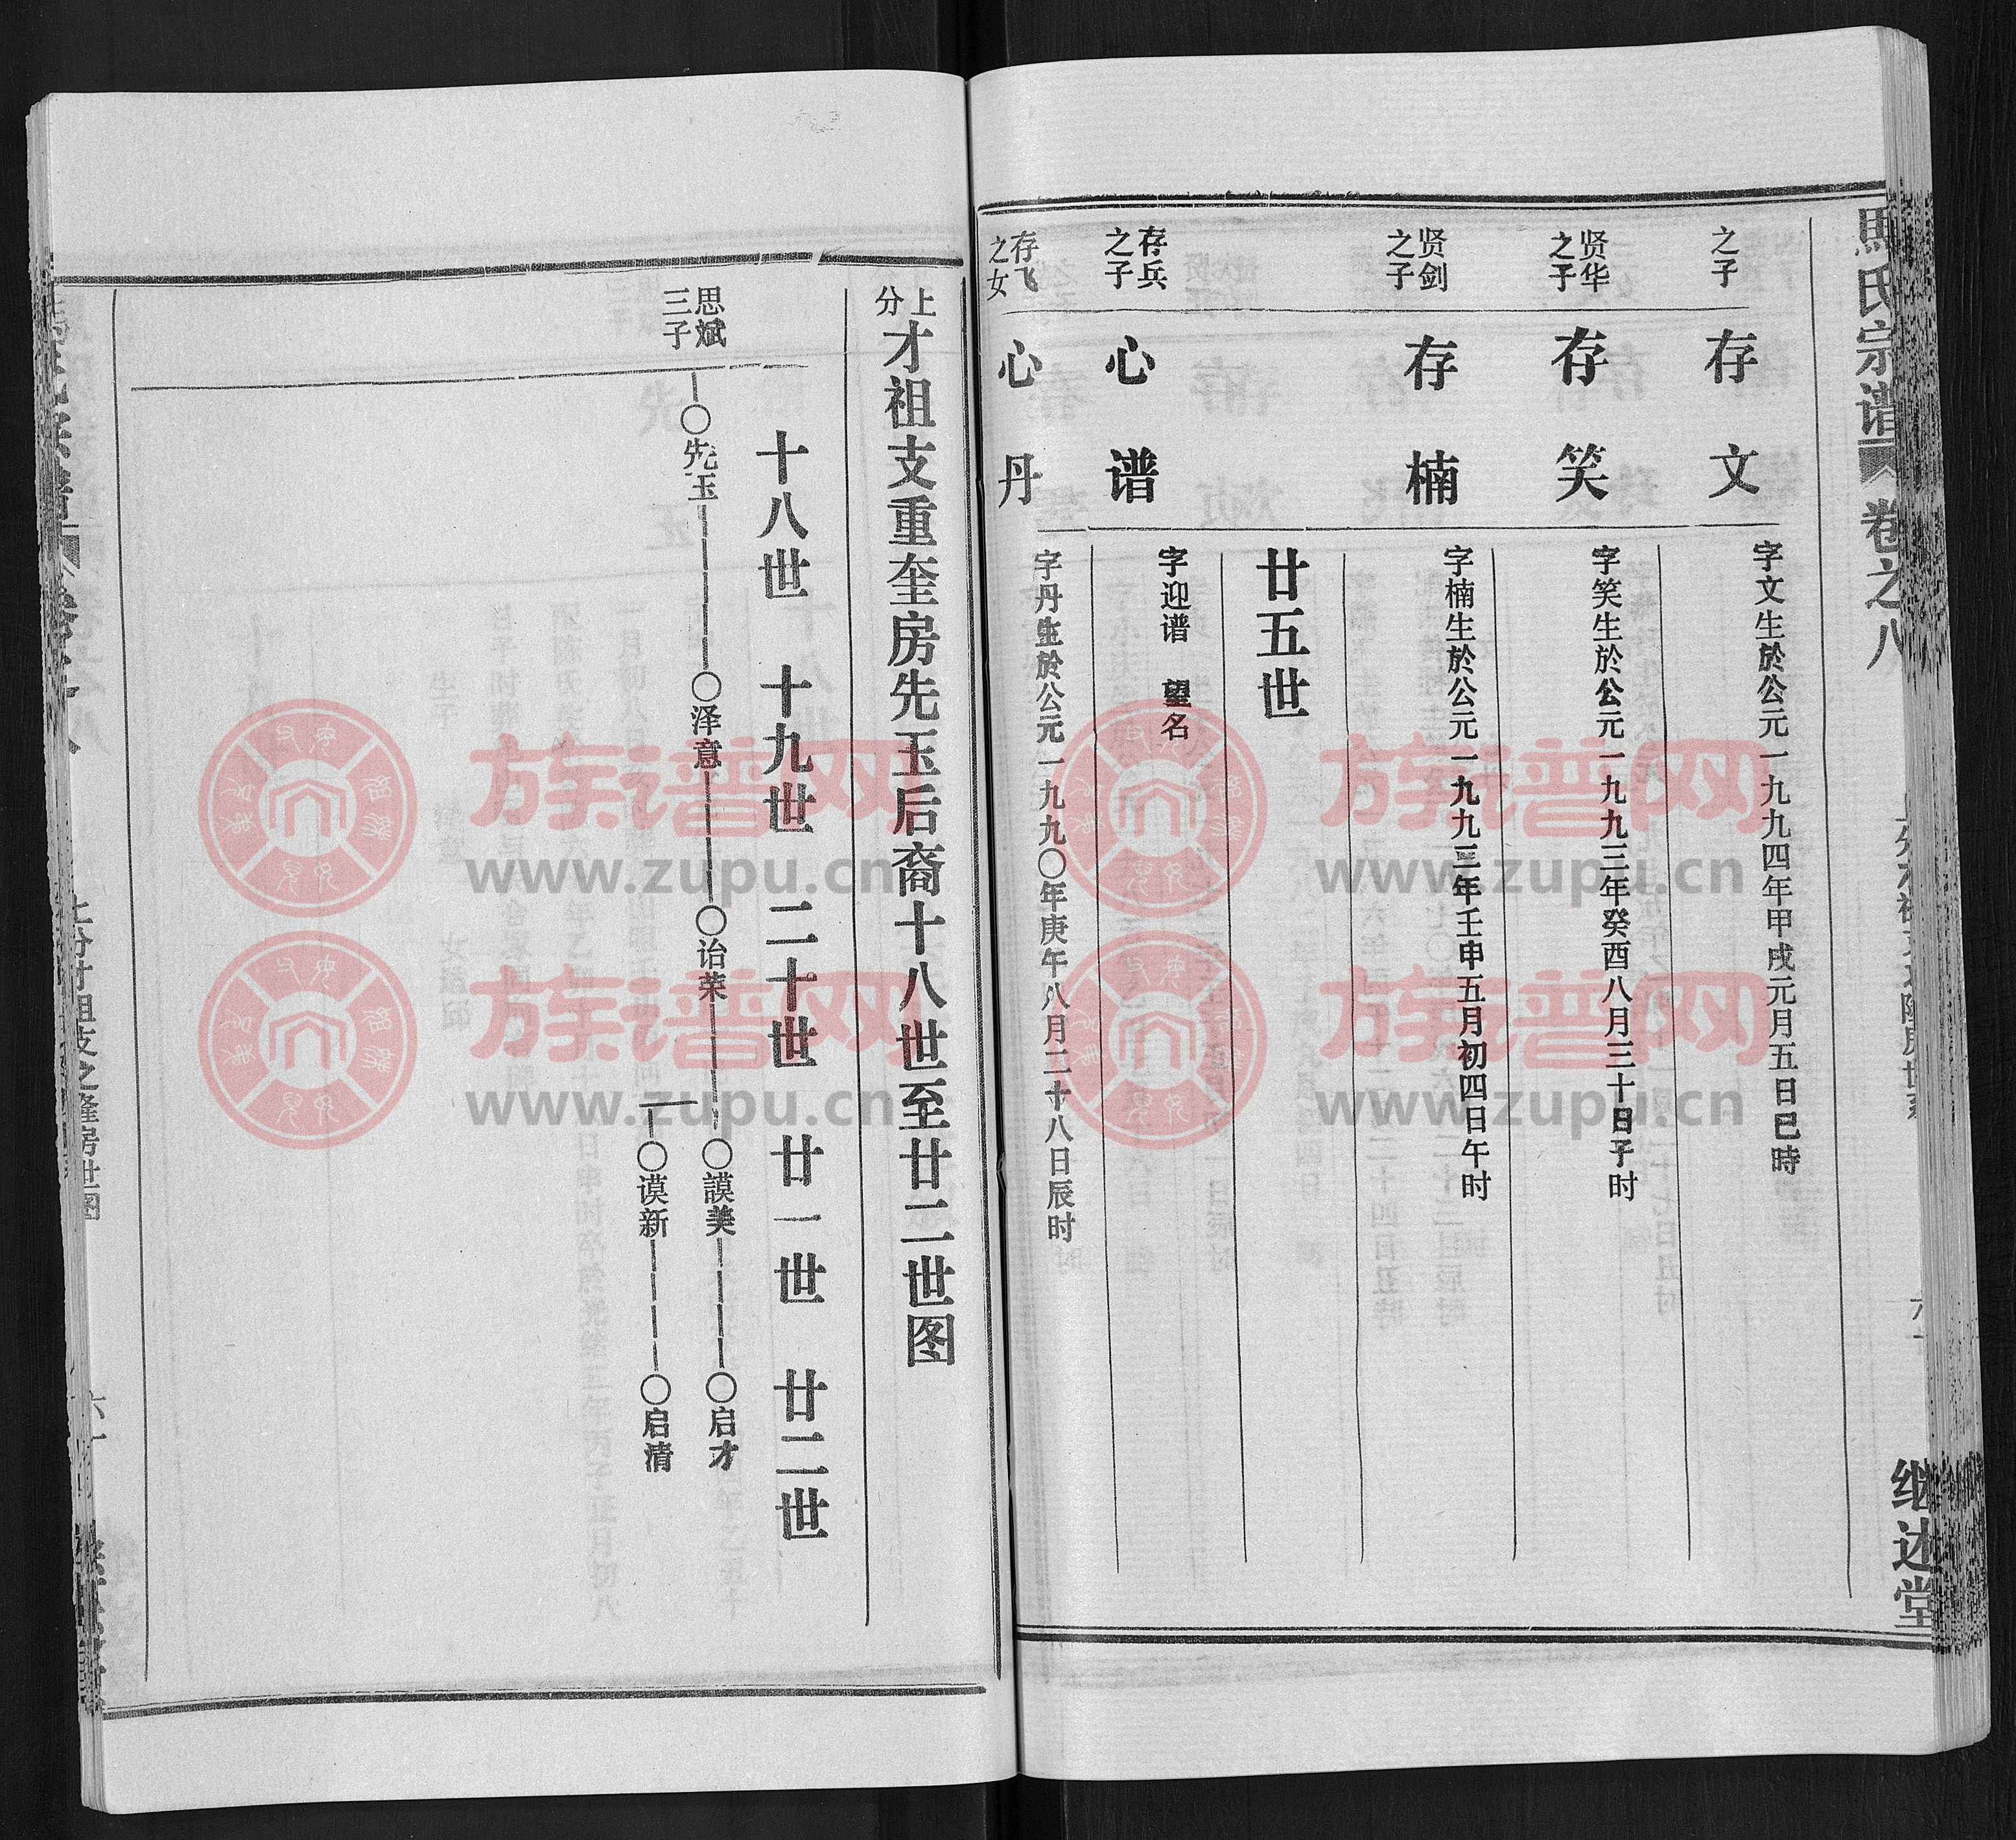 馬氏宗谱 卷之八
继述堂
之子
存文
字文生於公元一九九四年甲戌元月五日巳時
贤华之子
存笑
字笑生於公元一九九三年癸酉八月三十日子时
贤剑之子
存楠
字楠生於公元一九九三年壬申五月初四日午时
廿五世
存兵之子
心谱
字迎谱 望名
存飞之女
心丹
字丹生於公元一九九〇年庚午八月二十八日辰时
上分才祖支重奎房先玉后裔十八世至廿二世图
十八世 十九世 二十世 廿一世 廿二世
思斌三子
〇先玉 〇泽意 〇诒荣 〇謨美 〇启才
〇谟新 〇启清
族谱网
www.zupu.cn
族谱网
www.zupu.cn
族谱网
www.zupu.cn
族谱网
www.zupu.cn